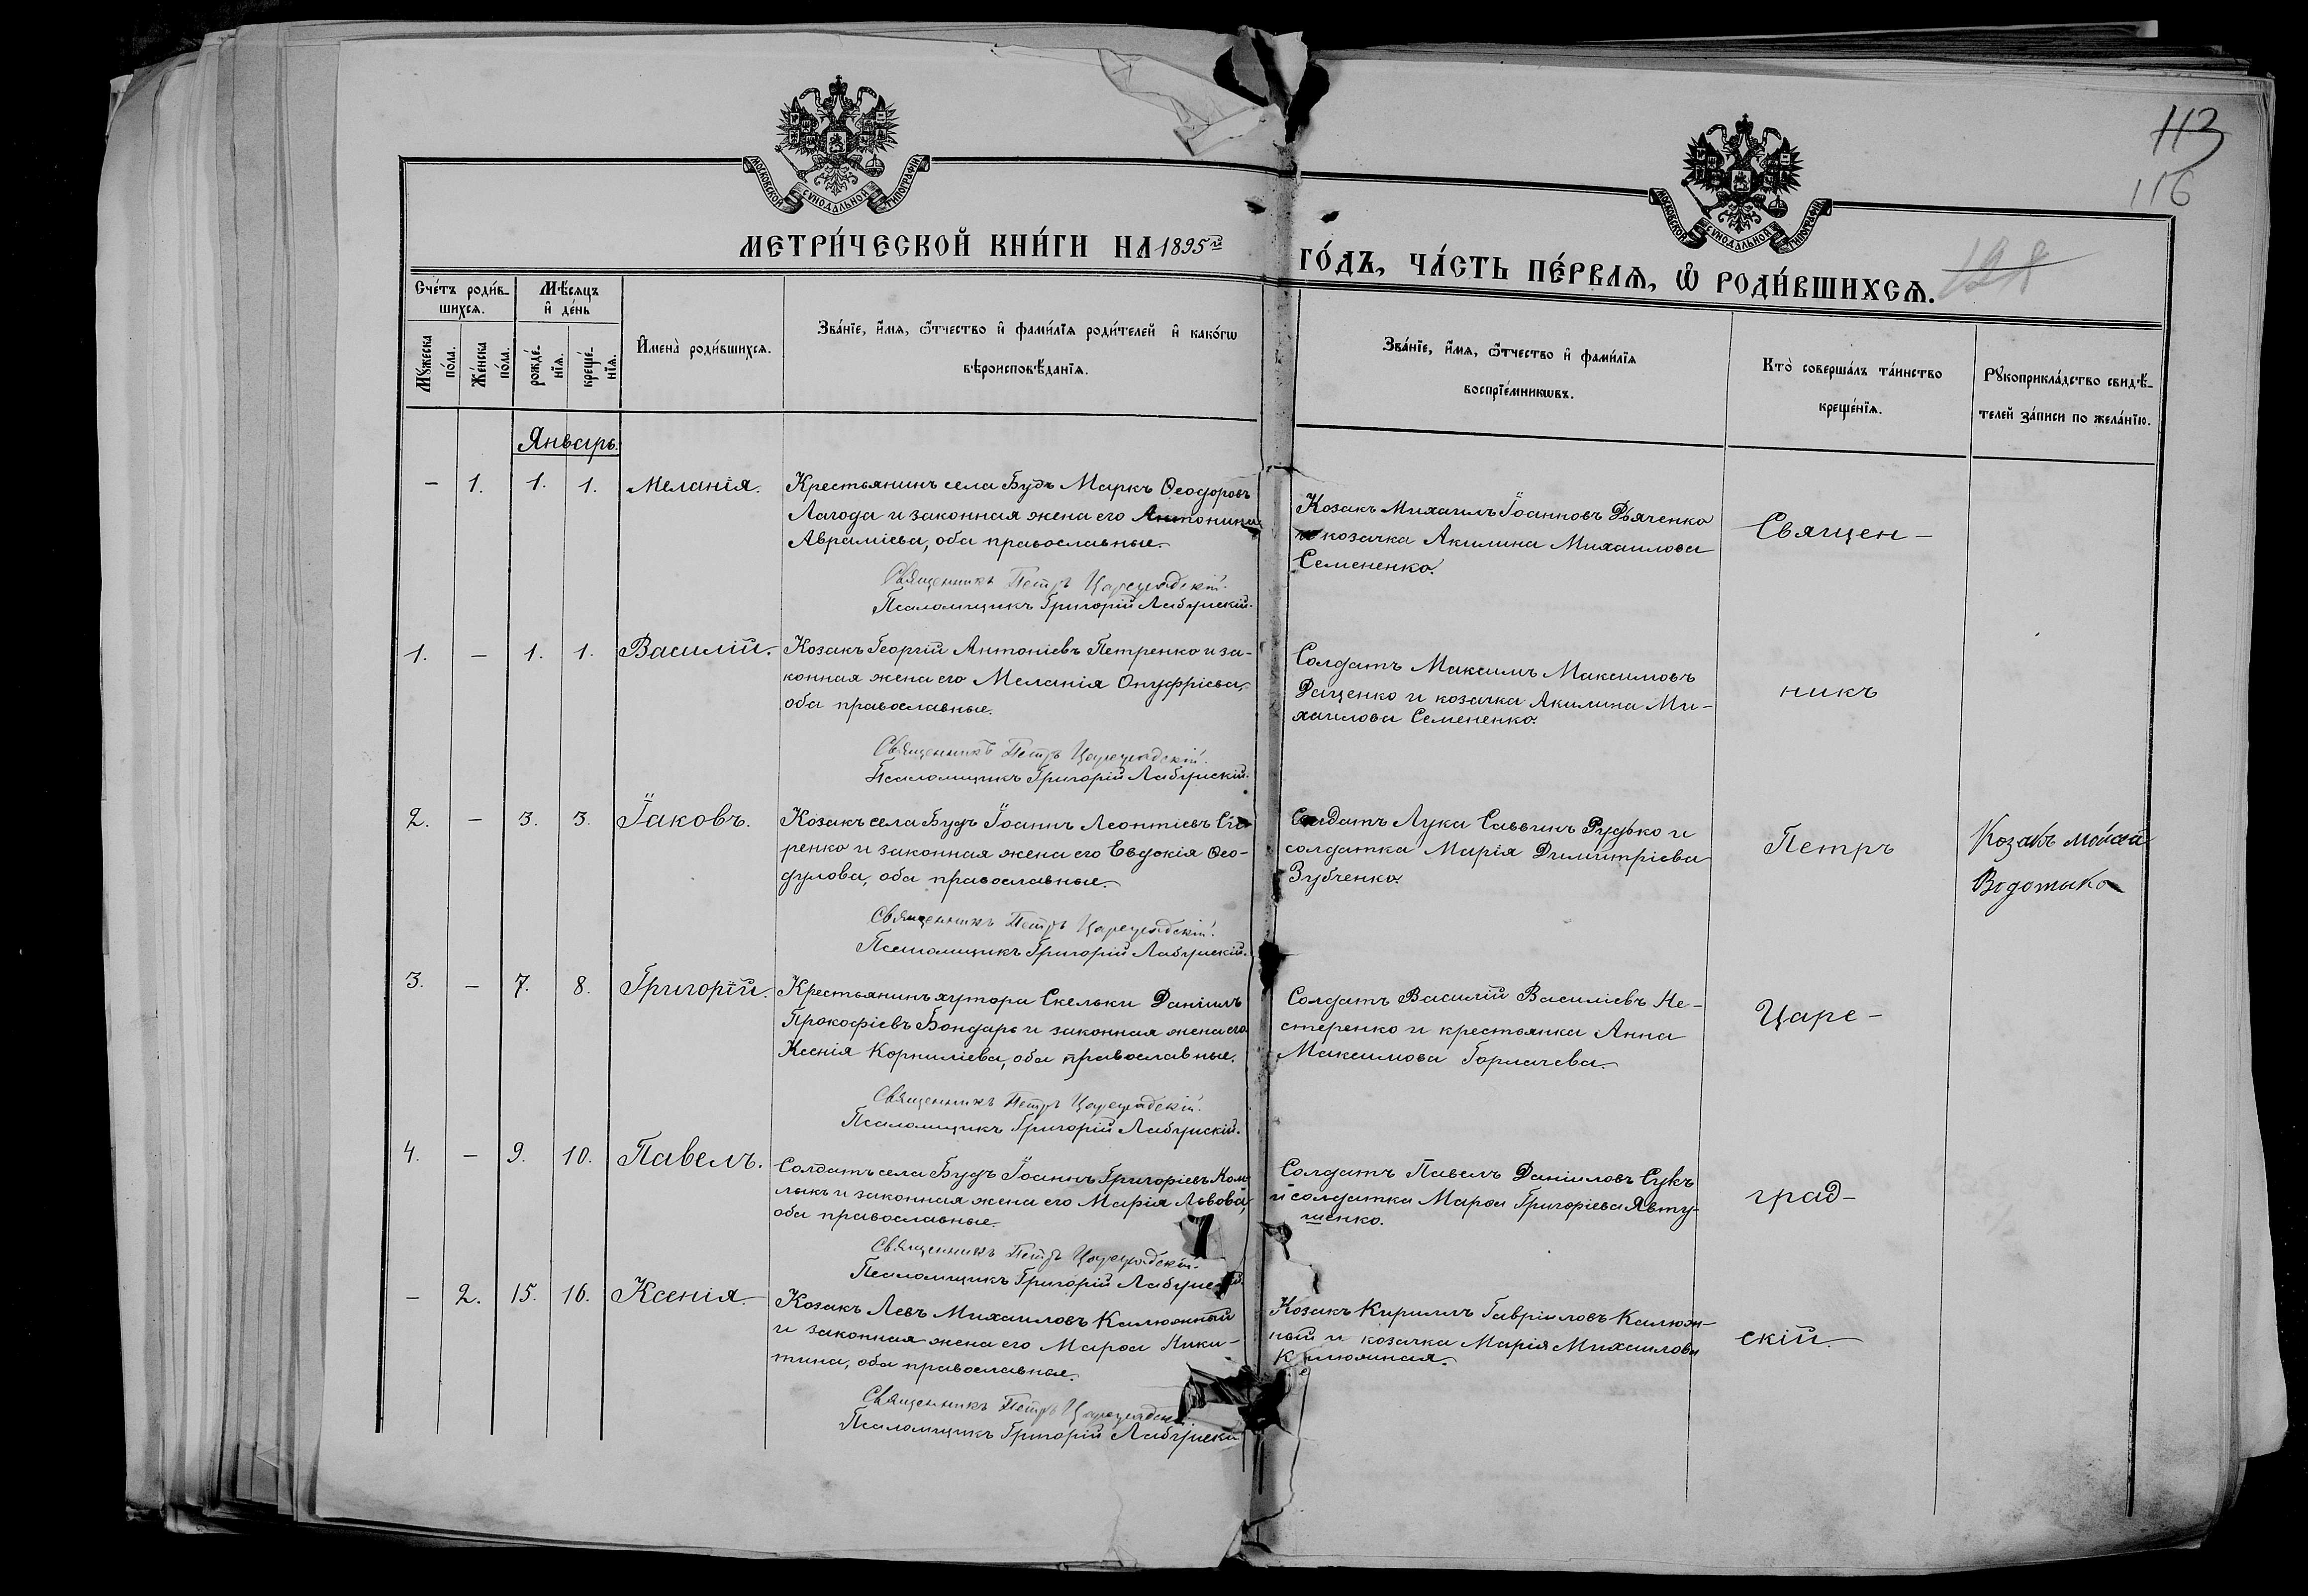 113
116
128
МОСКОВСКОЙ СѴНОДАЛЬНОЙ ТИПОГРАФІИ
МОСКОВСКОЙ СѴНОДАЛЬНОЙ ТИПОГРАФІИ
МЕТРИ́ЧЕСКОЙ КНИ́ГИ НА 1895й ГО́ДЪ, ЧА́СТЬ ПЕ́РВАѦ, Ѽ РОДИ́ВШИХСѦ.
Сче́тъ роди́в-
шихсѧ.
Мѣ́сѧцъ
и҆ де́нь
Мꙋ́жеска
по́ла.
Же́нска
по́ла.
рожде́-
нїѧ.
креще́-
нїѧ.
И҆мена̀ роди́вшихсѧ.
Зва́нїе, и҆́мѧ, ѻ҆́тчество и҆ фами́лїѧ роди́телей и҆ како́гѡ
вѣроисповѣ́данїѧ.
Зва́нїе, и҆́мѧ, ѻ҆́тчество и҆ фами́лїѧ
воспрїе́мникѡвъ.
Кто̀ соверша́лъ та́инство
креще́нїѧ.
Рꙋкоприкла́дство свидѣ́-
телей за́писи по жела́нїю.
Январь.
– 1. 1. 1. Меланія.
Крестьянинъ села Будъ Маркъ Ѳеодоровъ
Лагода и законная жена его Антонина
Авраміева, оба православные.
Священникъ Петръ Цареградскій.
Псаломщикъ Григорій Лабунскій.
Козакъ Михаилъ Іоанновъ Дяченко
и козачка Акилина Михаилова
Семененко.
Священ-
1. – 1. 1. Василій.
Козакъ Георгій Антоніевъ Петренко и за-
конная жена его Меланія Онуфріева,
оба православные.
Священникъ Петръ Цареградскій.
Псаломщикъ Григорій Лабунскій.
Солдатъ Максимъ Максимовъ
Даценко и козачка Акилина Ми-
хаилова Семененко.
никъ
2. – 3. 3. Іаковъ.
Козакъ села Будъ Іоаннъ Леонтіевъ
ренко и законная жена его Евдокія Ѳео-
дулова, оба православные.
Священникъ Петръ Цареградскій.
Псаломщикъ Григорій Лабунскій.
Солдатъ Лука Саввинъ Рудько и
солдатка Марія Димитріева
Зубченко.
Петръ
Козакъ Мойсей
Водотыка
3. – 7. 8. Григорій.
Крестьянинъ хутора Скельки Даніилъ
Прокофіевъ Бондарь и законная жена его
Ксенія Корниліева, оба православные.
Священникъ Петръ Цареградскій.
Псаломщикъ Григорій Лабунскій.
Солдатъ Василій Василіевъ Не-
стеренко и крестьянка Анна
Максимова Горлачева.
Царе-
4. – 9. 10. Павелъ.
Солдатъ села Будъ Іоаннъ Григоріевъ Ком-
лыкъ и законная жена его Марія Львова,
оба православные.
Священникъ Петръ Цареградскій.
Псаломщикъ Григорій Лабунскій
Солдатъ Павелъ Даніиловъ Сукъ
и солдатка Марѳа Григоріева Явту-
шенко.
град-
– 2. 15. 16. Ксенія.
Козакъ Левъ Михаиловъ Калюжный
и законная жена его Марѳа Ники-
тина, оба православные.
Священникъ Петръ Цареградскій
Псаломщикъ Григорій Лабунскій
Козакъ Кириллъ Гавріиловъ Калюж-
ный и козачка Марія Михаилова
Калюжная.
скій.